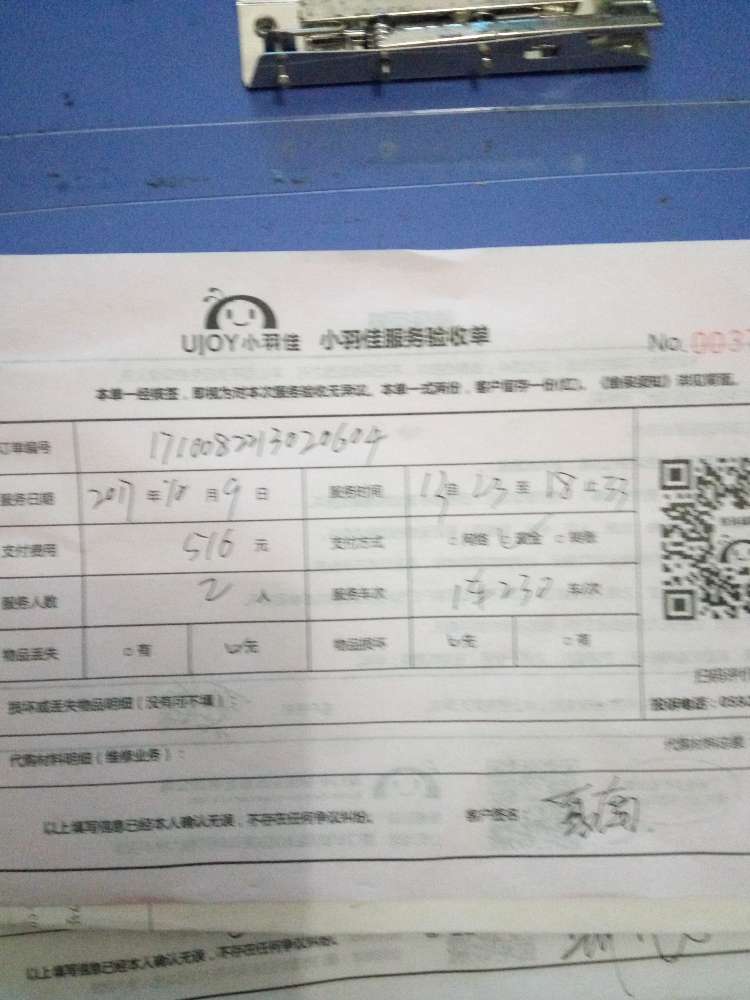 UJOY小羽佳 小羽佳服务验收单 No. 003
本单一经接签，即视为对本次服务验收无异议。本单一式两份，客户留存一份(红)。
订单编号 1710082213020604
服务日期 2017年10月9日 服务时间 13 23至18 33
支付费用 516元 支付方式 网络 现金
服务人数 2人 服务车次 230 车/次
物品丢失 有 无 物品损坏 无 有
损坏或丢失物品明细（没有可不填）：
代购材料明细（维修业务）： 代购材料总额
以上填写信息已经本人确认无误，不存在任何争议纠纷。 客户签名：
以上填写信息已经本人确认无误，不存在任何争议纠纷。